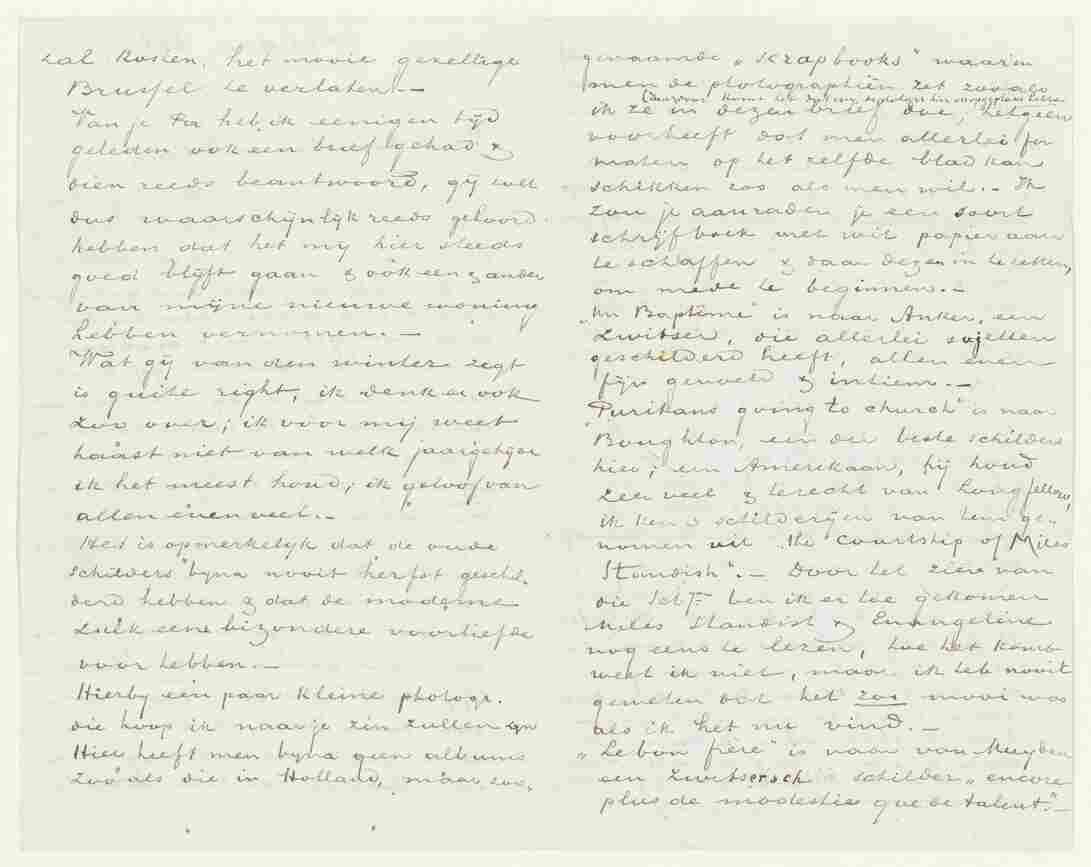 zal kosten, het mooie gezellige
Brussel te verlaten. –
Van je Pa heb ik eenigen tijd
geleden ook een brief gehad &
dien reeds beantwoord, gij zult
dus waarschijnlijk reeds gehoord
hebben dat het mij hier steeds
goed blijft gaan & ook een & ander
van mijne nieuwe woning
hebben vernomen. –
Wat gij van den winter zegt
is quite right, ik denk er ook
zoo over; ik voor mij weet
haast niet van welk jaargetijde
ik het meest houd; ik geloof van
allen even veel. –
Het is opmerkelijk dat de oude
schilders bijna nooit herfst geschil-
derd hebben & dat de moderne
zulk eene bizondere voorliefde
voor hebben. –
Hierby een paar kleine photogr.
die hoop ik naar je zin zullen zijn
Hier heeft men byna geen albums
zooals die in Holland, maar zoo-
genaamde „Scrapbooks" waarin
men de photographiën zet zooals
(daardoor komt het dat wij de photogr. hier onopgeplakt hebben)
ik ze in dezen brief doe, hetgeen
voorheeft dat men allerlei for
maten op het zelfde blad kan
schikken zoo als men wil. – Ik
zou je aanraden je een soort
schrijfboek met wit papier aan
te schaffen & daar dezen in te zetten,
om mede te beginnen. –
„Un Baptême" is naar Anker, een
Zwitser, die allerlei sujetten
geschilderd heeft, allen even
fijn gevoeld & intiem. –
„Puritans going to church" is naar
Boughton, een der beste schilders
hier; een Amerikaan, hij houd
zeer veel & terecht van Longfellow,
ik ken 3 schilderijen van hem ge-
nomen uit „the courtship of Miles
Standish". – Door het zien van
die schij ben ik er toe gekomen
Miles Standish & Evangeline
nog eens te lezen, hoe het komt
weet ik niet, maar ik heb nooit
geweten dat het zoo mooi was
als ik het nu vind. –
„Le bon frère" is naar van Muyden
een Zwitsersch schilder „encore
plus de modestie que de talent". –